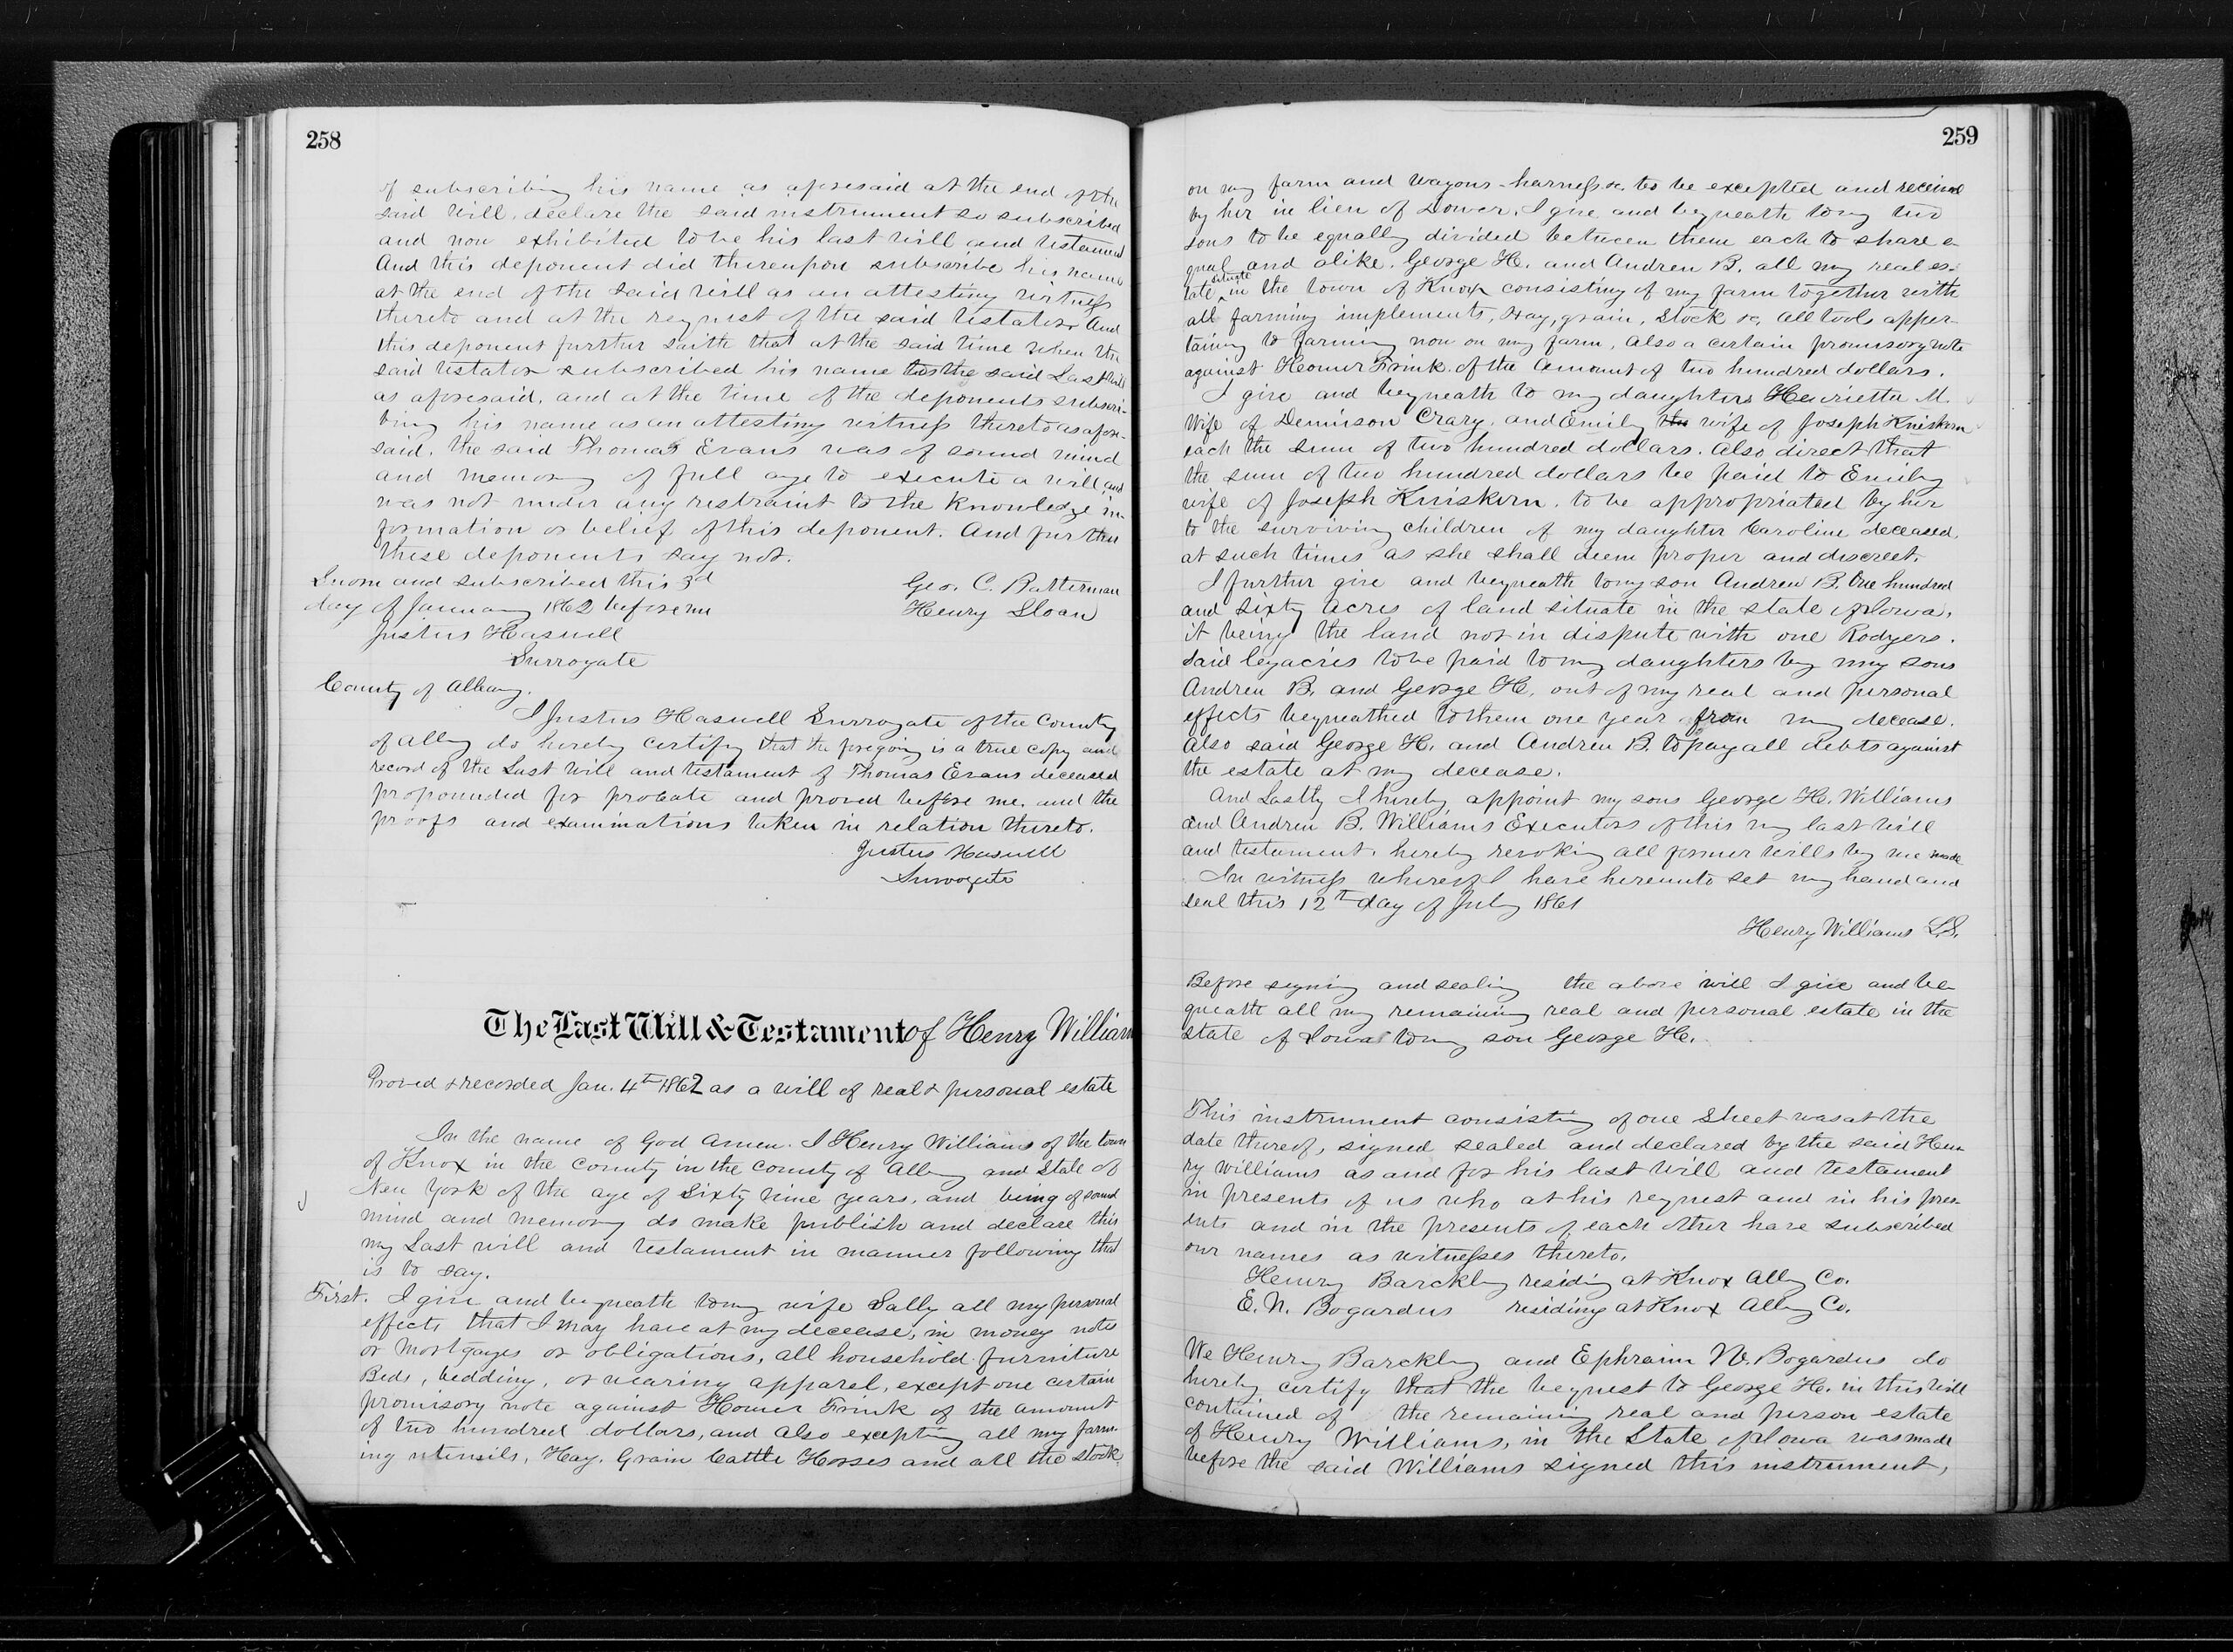 258
of subscribing his name as aforesaid at the end of the
said will, declare the said instrument so subscribed
and now exhibited to be his last will and testament
And this deponent did thereupon subscribe his name
at the end of the said will as an attesting witness
thereto and at the request of the said testator. And
this deponent further saith that at the said time when the
said testator subscribed his name to the said Last Will
as aforesaid, and at the time of the deponents subscri-
bing his name as an attesting witness thereto as afore-
said, the said Thomas Evans was of sound mind
and memory of full age to execute a will and
was not under any restraint to the knowledge in-
formation or belief of this deponent. And further
these deponents say not.
Sworn and subscribed this 3d
day of January 1862 before me
Geo. C. Batterman
Henry Sloan
Justus Haswell
Surrogate
County of Albany.
I Justus Haswell Surrogate of the County
of Alby do hereby certify that the foregoing is a true copy and
record of the Last Will and testament of Thomas Evans deceased
propounded for probate and proved before me, and the
proofs and examinations taken in relation thereto.
Justus Haswell
Surrogate
The Last Will & Testament of Henry William
Proved & recorded Jan. 4th 1862 as a will of real & personal estate
In the name of God Amen. I Henry Williams of the town
of Knox in the County in the County of Albany and State of
New York of the age of Sixty nine years, and being of sound
mind and memory do make publish and declare this
my Last will and testament in manner following that
is to say.
First. I give and bequeath to my wife Sally all my personal
effects that I may have at my decease, in money notes
or Mortgages or obligations, all household furniture
Beds, bedding, or wearing apparel, except one certain
promisory note against Homer Frink of the amount
of two hundred dollars, and also excepting all my farm-
ing utensils, Hay, Grain Cattle Horses and all the stock
259
on my farm and wagons-harness &c. to be excepted and received
by her in lieu of Dower. I give and bequeath to my two
sons to be equally divided between them each to share e-
qual and alike. George H. and Andrew B. all my real es-
tate situate in the town of Knox consisting of my farm together with
all farming implements, Hay, grain, Stock &c. All tools apper-
taining to farming now on my farm, Also a certain promisory note
against Homer Frink of the amount of two hundred dollars.
I give and bequeath to my daughters Henrietta M.
Wife of Dennison Crary, and Emily the wife of Joseph Kniskern
each the sum of two hundred dollars. Also direct that
the sum of two hundred dollars be paid to Emily
wife of Joseph Kniskern. to be appropriated by her
to the surviving children of my daughter Caroline deceased,
at such times as she shall deem proper and discreet.
I further give and bequeath to my son Andrew B. One hundred
and sixty acres of land situate in the state of Iowa,
it being the land not in dispute with one Rodgers.
Said legacies to be paid to my daughters by my sons
Andrew B. and George H. out of my real and personal
effects bequeathed to them one year from my decease.
Also said George H. and Andrew B. to pay all debts against
the estate at my decease.
And Lastly I hereby appoint my sons George H. Williams
and Andrew B. Williams Executors of this my last will
and testament, hereby revoking all former wills by me made
In witness whereof I have hereunto set my hand and
seal this 12th day of July 1861
Henry Williams L.S.
Before signing and sealing the above will I give and be-
queath all my remaining real and personal estate in the
state of Iowa to my son George H.
This instrument consisting of one Sheet was at the
date thereof, signed sealed and declared by the said Hen-
ry Williams as and for his last will and testament
in presents of us who at his request and in his pres-
ents and in the presents of each other have subscribed
our names as witnesses thereto.
Henry Barckley residing at Knox Alby Co.
E. N. Bogardus residing at Knox Alby Co.
We Henry Barckley and Ephraim N. Bogardus do
hereby certify that the bequest to George H. in this will
contained of the remaining real and person estate
of Henry Williams, in the State of Iowa was made
before the said Williams signed this instrument,